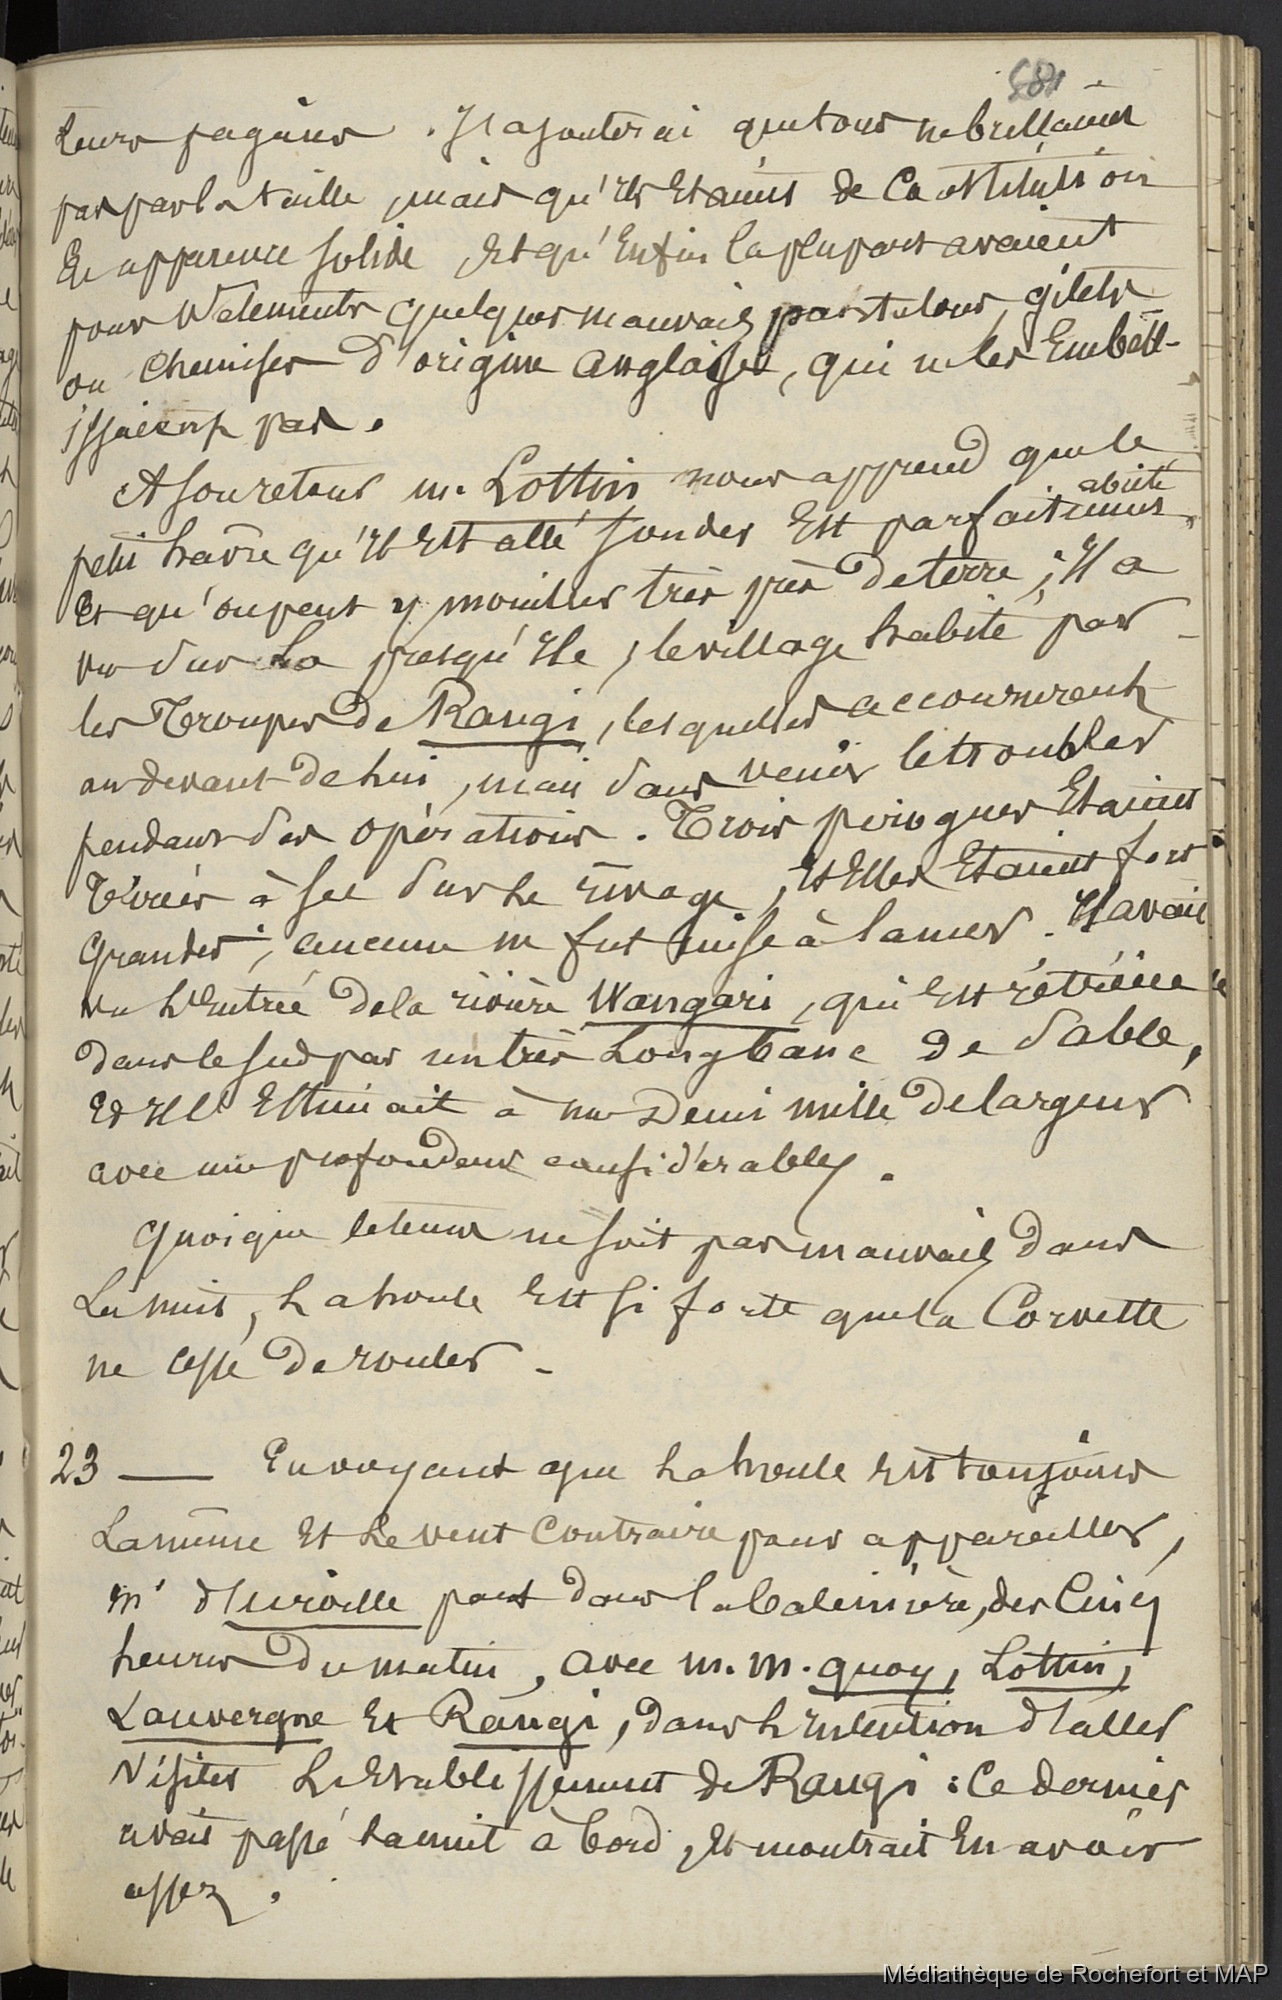 581
Leurs pagaies. J'ajouterai que tous ne brillaient
pas par la taille, mais qu'ils Etaient de Constitution
En apparence solide, Et qu'Enfin la plupart avaient
pour Vêtements quelques mauvais pantalons, gilets
ou chemises d'origine anglaise, qui ne les Embell-
issaient pas.
A son retour m. Lottin nous apprend que le
petit hâvre qu'Il Est allé sonder Est parfaitement abrité,
Et qu'on peut y mouiller très près de terre; Il a
vu sur La presqu'Ile, le village habité par
les Troupes de Rangi, lesquelles accoururent
au devant de lui, mais sans venir le troubler
pendant ses opérations. Trois pirogues Etaient
Tirées à sec sur Le rivage, Et Elles Etaient fort
Grandes; aucune ne fut mise à la mer. Il avait
vu L'Entrée de la rivière Wangari, qui Est rétrécie
dans le sud par un très Long banc de Sable,
Et Il l'Estimait à un Demi mille de largeur
avec une profondeur considérable.
Quoique le tems ne soit pas mauvais dans
La nuit, La houle Est si forte que la Corvette
ne cesse de rouler.
23 — En voyant que La houle Est toujours
La même Et Le vent Contraire pour appareiller,
mr d'Urville part dans la baleinière, des Cinq
heures Du matin, avec m.m. quoy, Lottin,
Lauvergne Et Rangi, dans L'Intention d'aller
Visiter L'Etablissement de Rangi: Ce dernier
avait passé La nuit à bord, Et montrait En avoir
assez.
Médiathèque de Rochefort et MAP